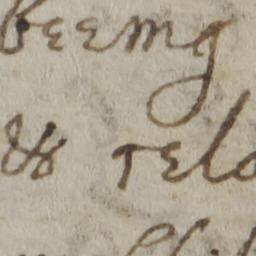 beeing
& rela